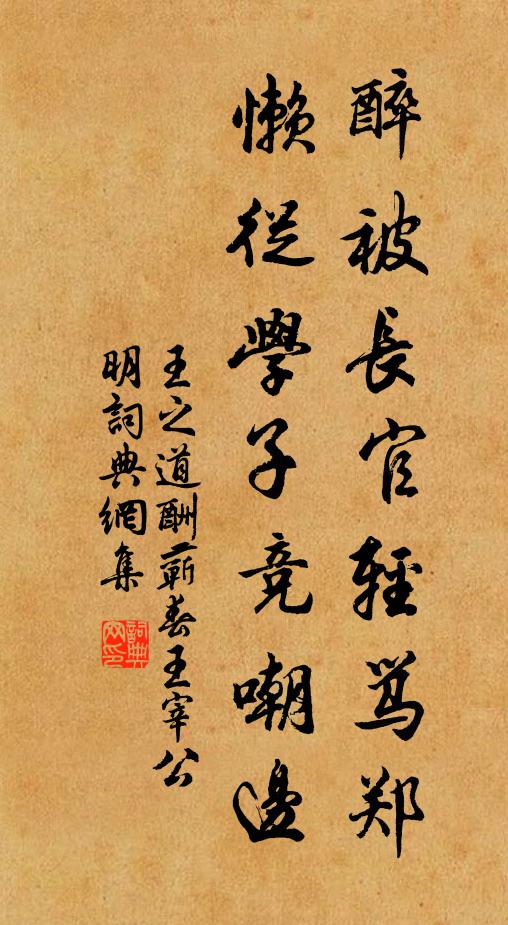 醉被長官輕骂郑
懶從學子竞嘲邊
王之道酬蕲春王宰公
明詞典網集
詞典
网印